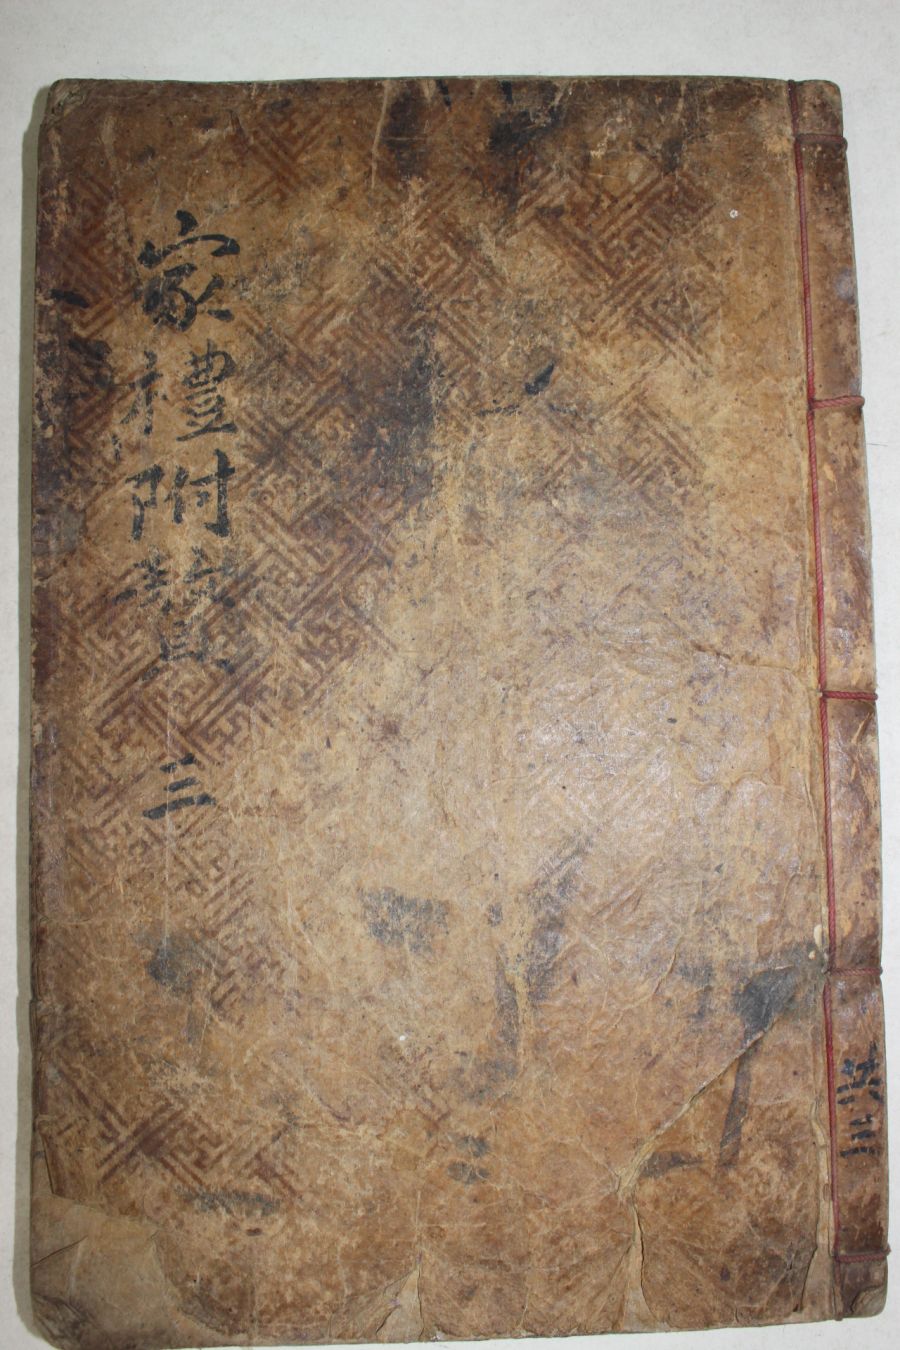 家禮附贅 三
共三